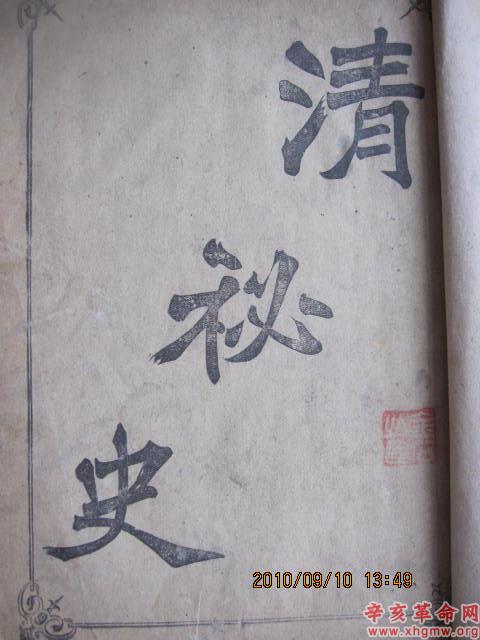 清
祕
史
2010/09/10 13:49
辛亥革命网
www.xhgmw.org